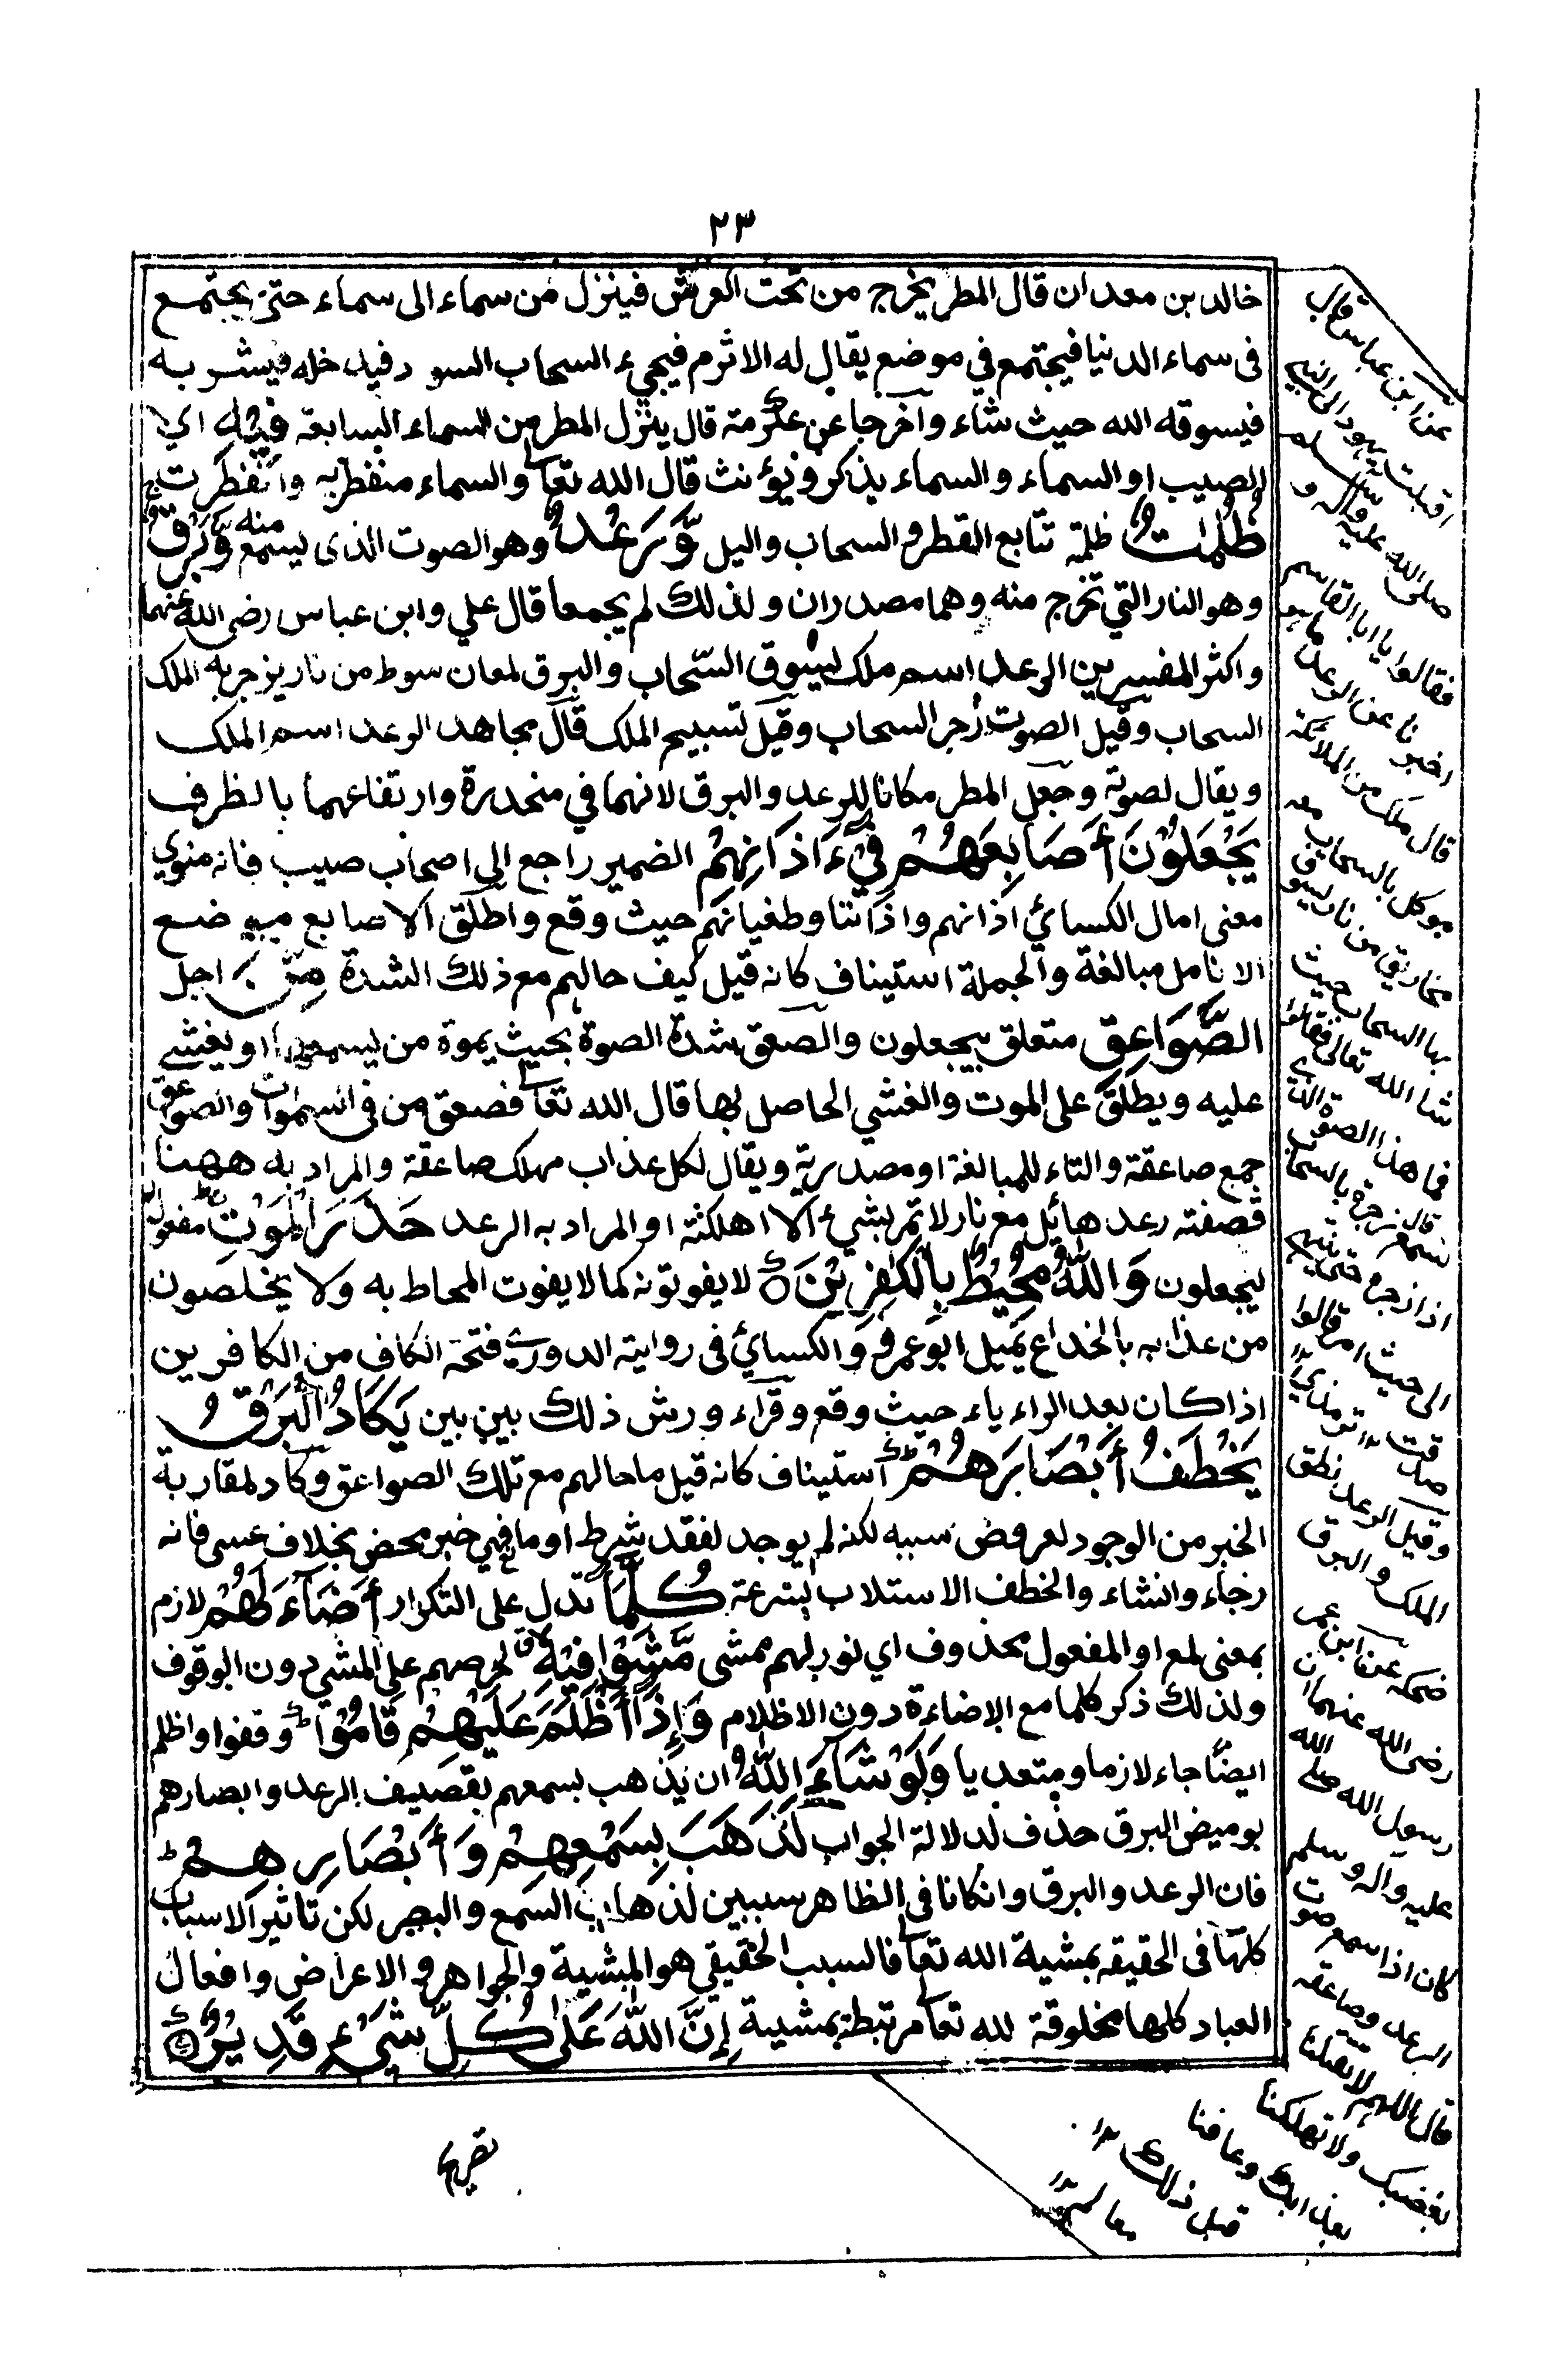 ٢٣
خالد بن معدان قال المطر يخرج من تحت العرش فينزل من سماء الى سماء حتى يجتمع
فى سماء الدنيا فيجتمع في موضع يقال له الاثرم فيجيء السحاب السود فيدخله فيشربه
فيسوقه الله حيث شاء واخرجا عن عكرمة قال ينزل المطر من السماء السابعة فِيْهِ اي
الصيب او السماء والسماء يذكر ويؤنث قال الله تعالى والسماء منفطر به وانفطرت
ظُلُمٰتٌ ظلمة تتابع القطر و السحاب واليل وَّرَعْدٌ وهو الصوت الذى يسمع منه وَّبَرْقٌ
وهو النار التي تخرج منه وهما مصدران ولذلك لم يجمعا قال علي وابن عباس رضى الله عنهما
واكثر المفسرين الرعد اسم ملك يسوق السّحاب والبرق لمعان سوط من نار يزجر به الملك
السحاب وقيل الصوت زجر السحاب وقيل تسبيح الملك قال مجاهد الرعد اسم الملك
ويقال لصوته وجعل المطر مكانا للرعد والبرق لانهما في منحدرة وارتفاعهما بالظرف
يَجْعَلُوْنَ أَصَابِعَهُمْ فِيْٓ ءَاذَانِهِمْ الضمير راجع الى اصحاب صيب فانه منوي
معنى امال الكسائي اذانهم واذاننا وطغيانهم حيث وقع واطلق الاصابع موضع
الانامل مبالغة والجملة استيناف كانه قيل كيف حالهم مع ذلك الشدة مِّنَ اجل
الصَّوَاعِقِ متعلق بيجعلون والصعق شدة الصوة بحيث يموة من يسمعها او يغشى
عليه ويطلق على الموت والغشي الحاصل بها قال الله تعالى فصعق من فى السموات والصواعق
جمع صاعقة والتاء للمبالغة او مصدرية ويقال لكل عذاب مهلك صاعقة والمراد به ههنا
قصفته رعد هائل مع نار لا تمر بشيء الا اهلكته او المراد به الرعد حَذَرَ الْمَوْتِ مفعول له
ليجعلون وَاللّٰهُ مُحِيْطٌ بِالْكٰفِرِيْنَ لا يفوتونه كما لا يفوت المحاط به ولا يخلصون
من عذابه بالخداع يميل ابو عمرو والكسائي فى رواية الدورى فتحة الكاف من الكافرين
اذا كان بعد الراء ياء حيث وقع وقراء ورش ذلك بين بين يَكَادُ الْبَرْقُ
يَخْطَفُ أَبْصَارَهُمْ استيناف كانه قيل ما حالهم مع تلك الصواعق وكاد لمقاربة
الخبر من الوجود لعروض سببه لكنه لم يوجد لفقد شرط او مانع فهي خبر محض بخلاف عسى فانه
رجاء وانشاء والخطف الاستلاب بسرعة كُلَّمَآ تدل على التكرار أَضَآءَ لَهُمْ لازم
بمعنى لمع او المفعول محذوف اي نور لهم ممشى مَّشَوْا فِيْهِ لحرصهم على المشي دون الوقوف
ولذلك ذكر كلما مع الاضاءة دون الاظلام وَإِذَآ أَظْلَمَ عَلَيْهِمْ قَامُوْا وقفوا واظلم
ايضًا جاء لازما ومتعديا وَلَوْ شَآءَ اللّٰهُ ان يذهب بسمعهم بقصيف الرعد وابصارهم
بوميض البرق حذف لدلالة الجواب لَذَهَبَ بِسَمْعِهِمْ وَأَبْصَارِهِمْ
فان الرعد والبرق وانكانا فى الظاهر سببين لذهاب السمع والبصر لكن تاثير الاسباب
كلها فى الحقيقه بمشية الله تعالى فالسبب الحقيقي هو المشية والجواهر و الاعراض وافعال
العباد كلها مخلوقة لله تعالى مرتبطة بمشيبة إِنَّ اللّٰهَ عَلٰى كُلِّ شَيْءٍ قَدِيْرٌ
عن ابن عباس قال
اقبلت يهود الى النبي
صلى الله عليه وآله وسلم
فقالوا يا ابا القاسم
اخبرنا عن الرعد ما هو
قال ملك من الملائكة
موكل بالسحاب معه
مخاريق من نار يسوق
بها السحاب حيث
شاء الله تعالى فقالوا
فما هذا الصوة الذي
نسمع قال زجرة بالسحاب
اذا زجره حتى ينتهي
الى حيث امر قالوا
صدقت ترمذي
وقيل الرعد نطق
الملك والبرق
ضحكه عن ابن عمر
رضى الله عنهما ان
رسول الله صلى الله
عليه واله وسلم
كان اذا سمع صوت
الرعد وصاعقه
قال اللهم لا تقتلنا
بغضبك ولا تهلكنا
بعذابك وعافنا
قبل ذلك